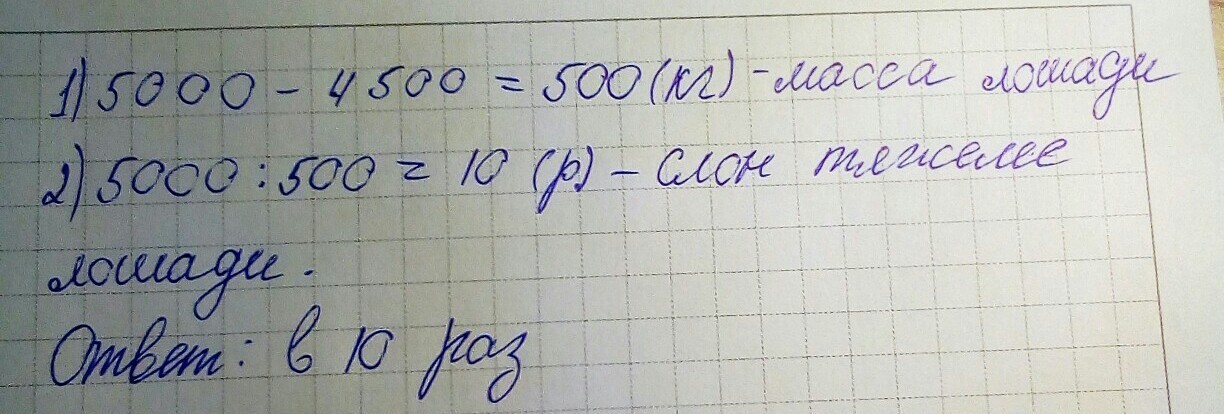 1) 5000 - 4500 = 500 (кг) - масса лошади
2) 5000 : 500 = 10 (р) - слон тяжелее
лошади.
Ответ: в 10 раз